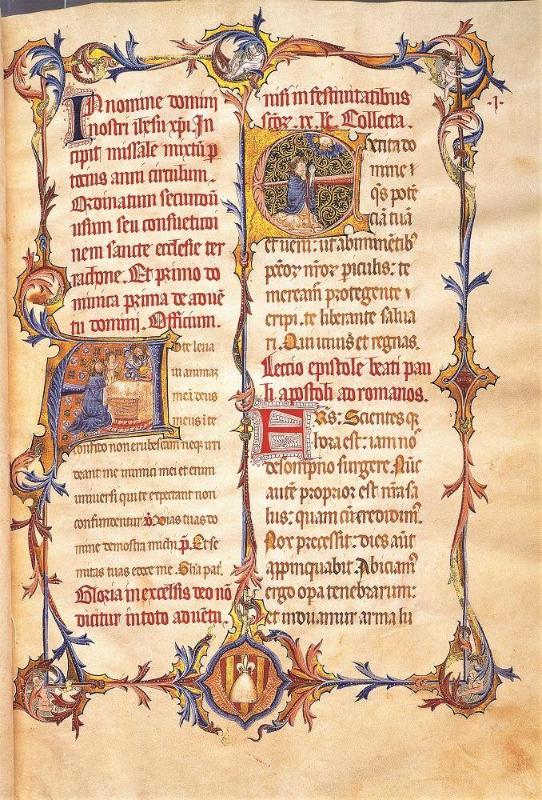 In nomine domini
nostri ihesu xpi. In
cipit missale mixtū p
totius anni circulum.
Ordinatum secundū
usum seu consuetudi
nem sancte ecclesie ter
rachone. Et primo do
minica prima de advē
tu domini. Officium.
Ad te leva
vi animaz
meā deus
meus ī te
confido non erubescam neqz irri
deant me inimici mei et enim
universi qui te expectant non
confundentur. p̄. Vias tuas do
mine demostra michi p̄. Et se
mitas tuas edoce me. Glīa pat̄.
Gloria in excelsis deo nō
dicitur in toto adventu.
nisi in festivitatibus
scōr. ix. lc. Collecta.
Excita do
mine ⁊
qs potē
ciā tuā
et veni: ut ab iminētib⁹
pctōr nrōr piculis: te
mereamr̄ protegente ⁊
eripi. te liberante salva
ri. Qui vivis et regnas.
Lectio epistole beati pau
li apostoli ad romanos.
Frs: Scientes qz
hora est: iam nō
de sompno surgere. Nūc
autē proprior est nrā sa
lus: quam cū credidim⁹.
Nox precessit: dies aūt
appinquabit: Abiciam⁹
ergo opa tenebrarum:
et induamur arma lu
.1.